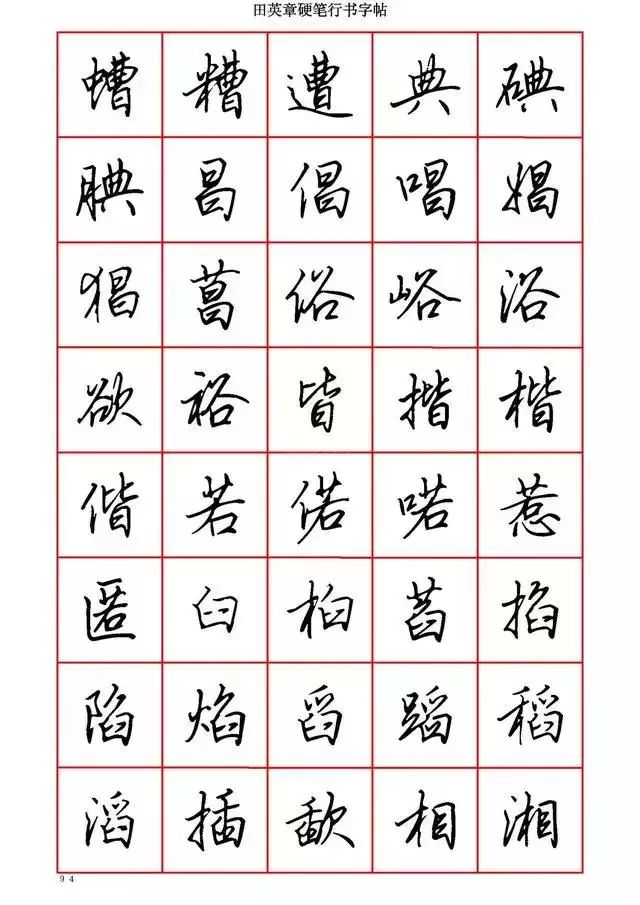 田英章硬笔行书字帖
螬 糟 遭 典 碘
腆 昌 倡 唱 娼
猖 菖 俗 峪 浴
欲 裕 皆 揩 楷
偕 若 偌 喏 惹
匿 臼 桕 萏 掐
陷 焰 舀 蹈 稻
滔 插 歃 相 湘
94